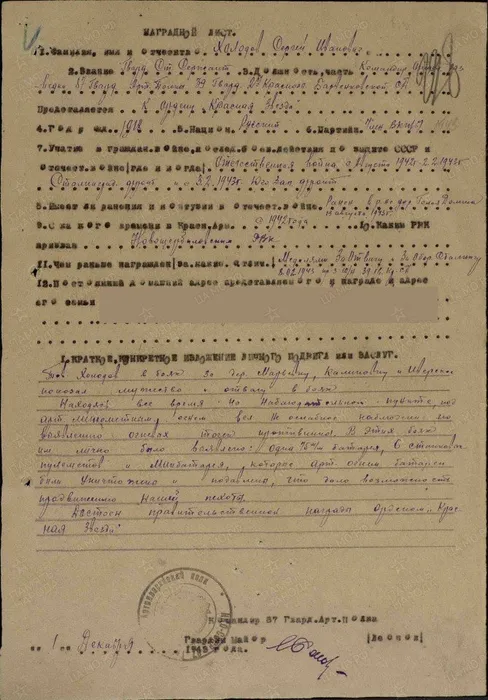 НАГРАДНОЙ ЛИСТ.
1. Фамилия, имя и отчество Холодов Сергей Иванович
2. Звание Гвард. Ст. Сержант 3. Должность, часть Командир
87 Гвард. Арт. Полка 39 Гвард. Барвенковской СД
Представляется К ордену "Красная Звезда"
4. Год рожд. 1918 5. Национ. Русский 6. Партийн. Член ВКП(б)
7. Участие в граждан. войне, послед. боев. действиях по защите СССР и
отечест. войне (где и когда) Отечественная война с августа 1942 г. 2.2.1943г.
Сталингр. фронт с 3.2.1943г. Юго Зап. фронт
8. Имеет ли ранения и контузии в отечест. войне Ранен в р-не дер. Голая Долина
августа 1943г.
9. С какого времени в Красн. Арм. с 1942 года 10. Каким РВК
призван РВК
11. Чем ранее награжден (за какие отлич. Медалями За Отвагу и За Обор. Сталинграда
12. Постоянный домашний адрес представляемого к награде и адрес
его семьи
1. КРАТКОЕ, КОНКРЕТНОЕ ИЗЛОЖЕНИЕ ЛИЧНОГО ПОДВИГА ИЛИ ЗАСЛУГ.
Тов. Холодов в боях за дер. Марьевку, Калиновку и
показал мужество и отвагу в боях
Находясь все время на Наблюдательном пункте, под
арт. минометным огнем вел не ослабное наблюдение по
выявлению огневых точек противника. В этих боях
им лично было выявлено: одна батарея, 6 станковых
пулеметов и Минбатарея, которое арт. огнем батареи
были уничтожено и подавлено, что дало возможность
продвижению нашей пехоты.
Достоин правительственной награды орденом "Крас-
ная Звезда".
Артиллерийский полк
Командир 87 Гвард. Арт. Полка
Гвардии Майор
1 Декабря 1943 года.